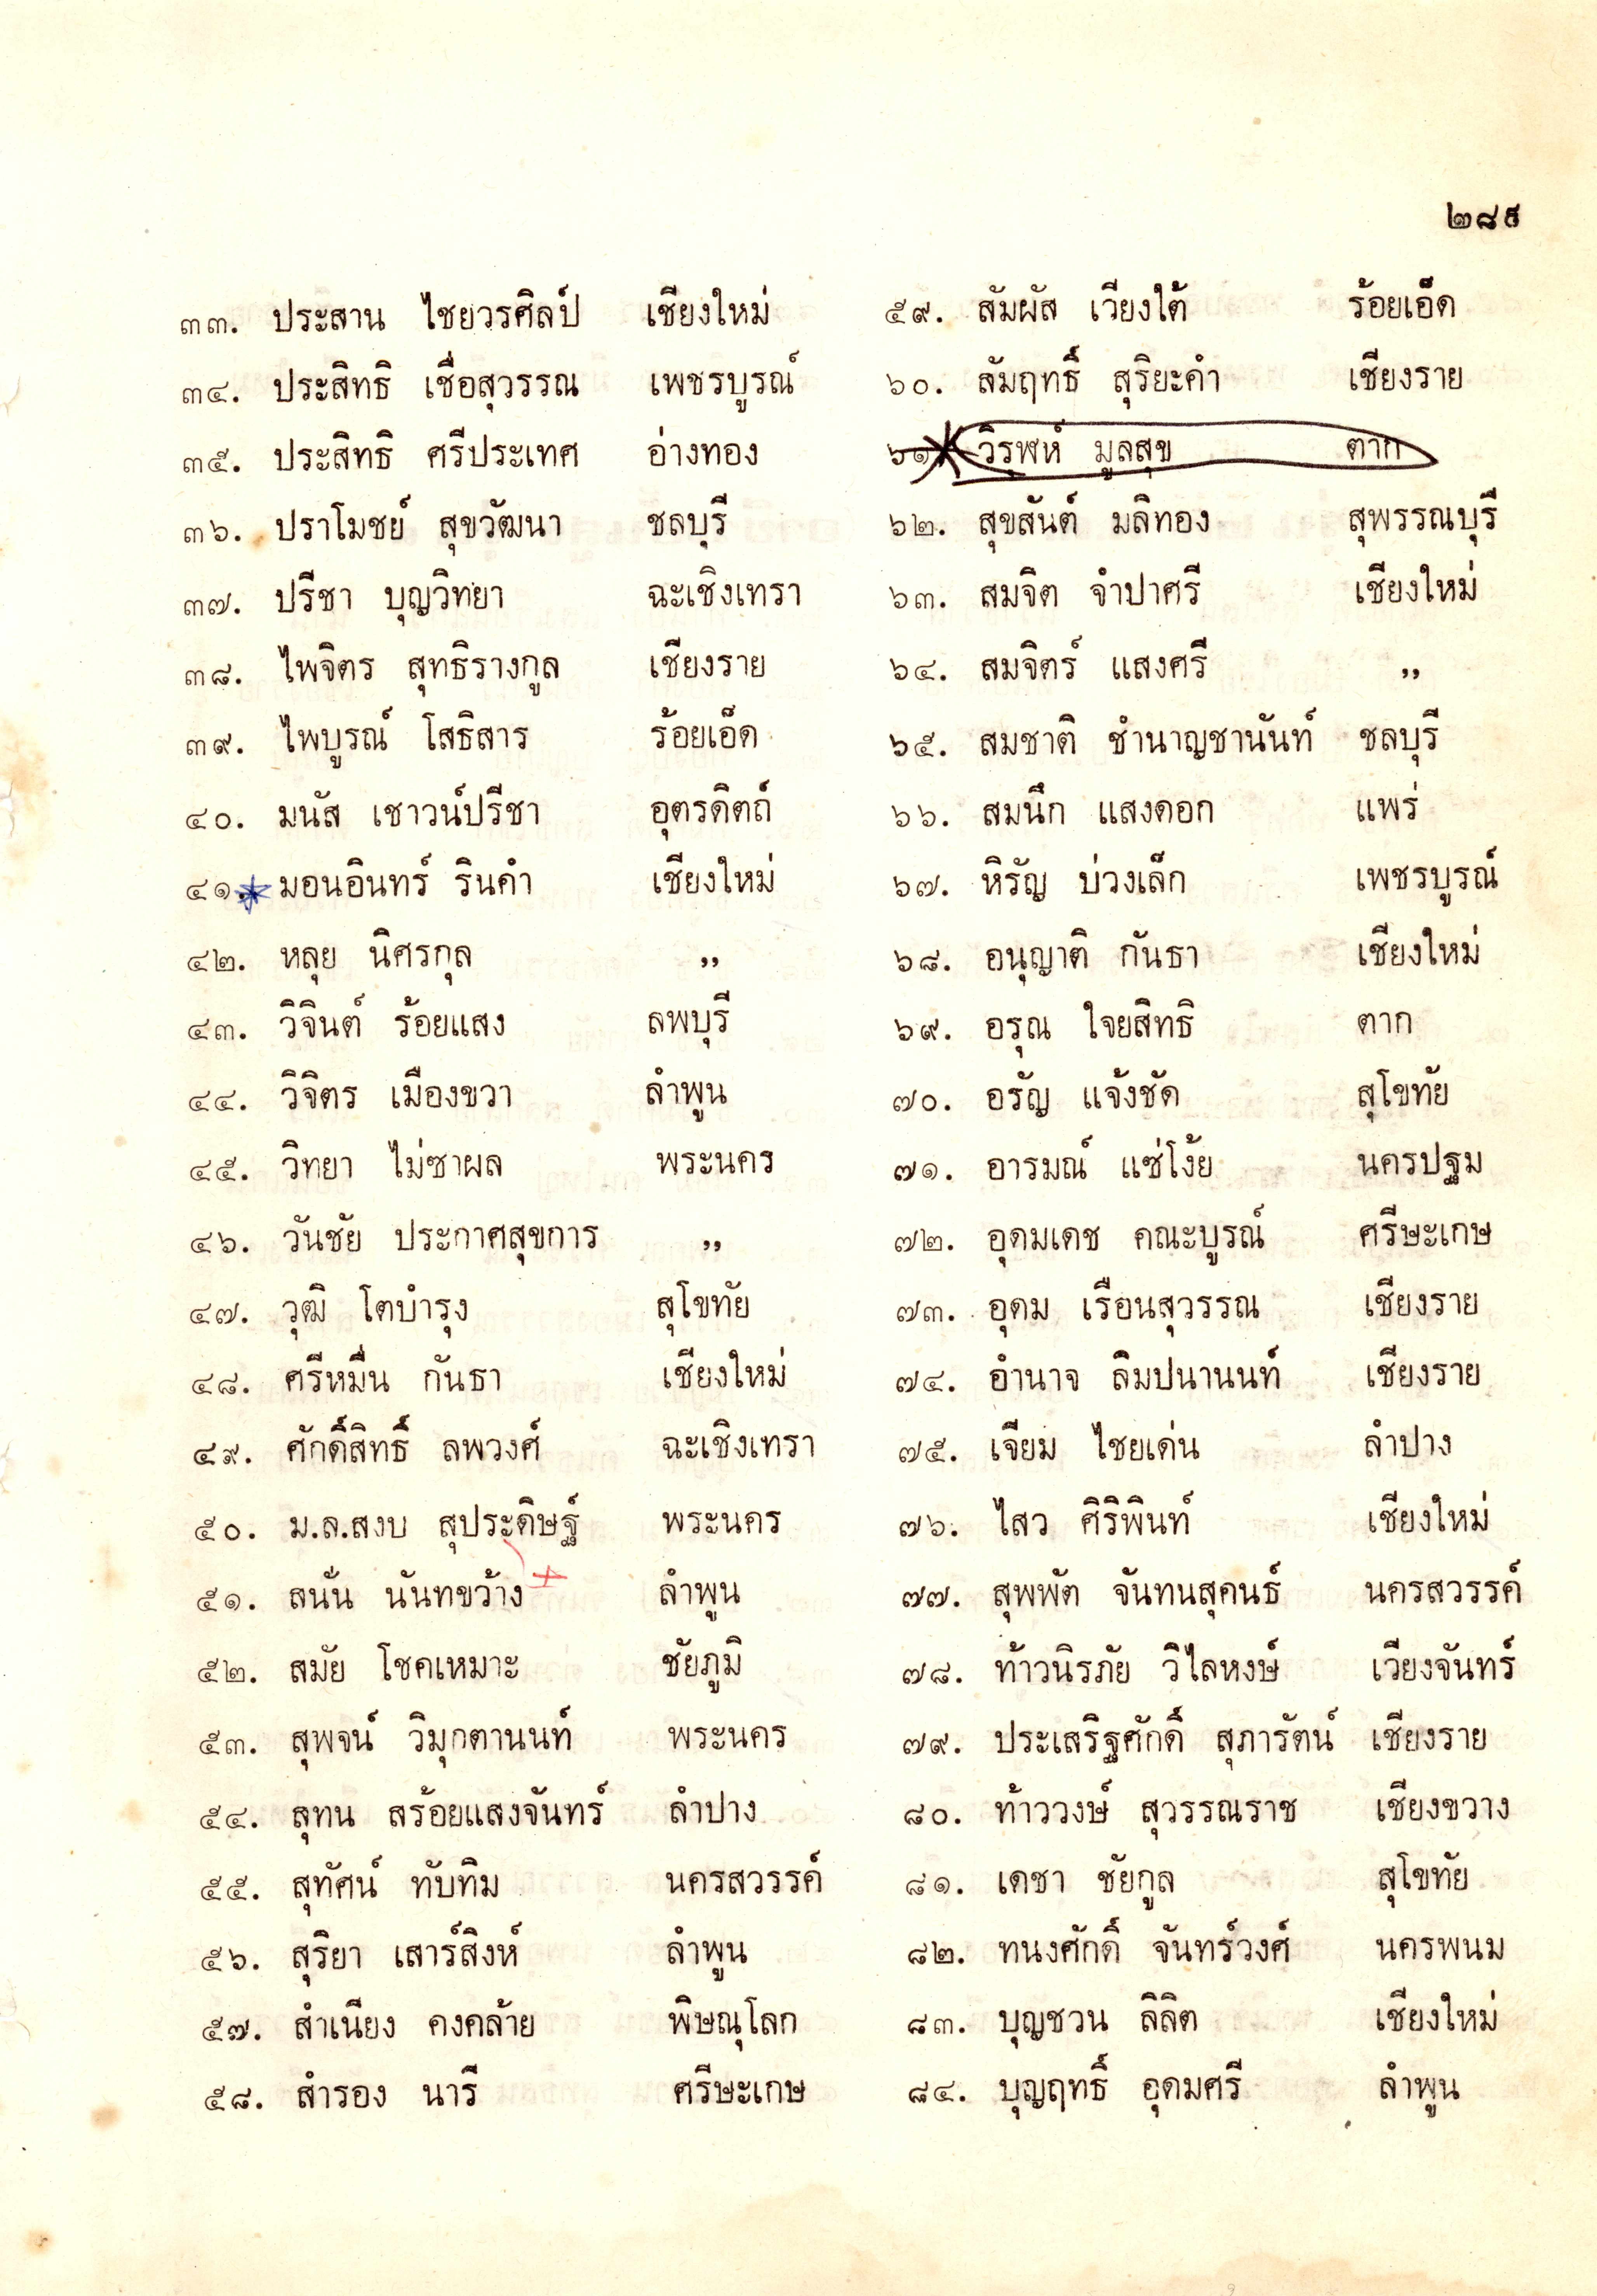 ๒๘๙
๓๓. ประสาน ไชยวรศิลป์ เชียงใหม่
๓๔. ประสิทธิ เชื่อสุวรรณ เพชรบูรณ์
๓๕. ประสิทธิ ศรีประเทศ อ่างทอง
๓๖. ปราโมชย์ สุขวัฒนา ชลบุรี
๓๗. ปรีชา บุญวิทยา ฉะเชิงเทรา
๓๘. ไพจิตร สุทธิรางกูล เชียงราย
๓๙. ไพบูรณ์ โสธิสาร ร้อยเอ็ด
๔๐. มนัส เชาวน์ปรีชา อุตรดิตถ์
๔๑. มอนอินทร์ รินคำ เชียงใหม่
๔๒. หลุย นิศรกุล ,,
๔๓. วิจินต์ ร้อยแสง ลพบุรี
๔๔. วิจิตร เมืองขวา ลำพูน
๔๕. วิทยา ไม่ซาผล พระนคร
๔๖. วันชัย ประกาศสุขการ ,,
๔๗. วุฒิ โตบำรุง สุโขทัย
๔๘. ศรีหมื่น กันธา เชียงใหม่
๔๙. ศักดิ์สิทธิ์ ลพวงศ์ ฉะเชิงเทรา
๕๐. ม.ล.สงบ สุประดิษฐ์ พระนคร
๕๑. สนั่น นันทขว้าง ลำพูน
๕๒. สมัย โชคเหมาะ ชัยภูมิ
๕๓. สุพจน์ วิมุกตานนท์ พระนคร
๕๔. สุทน สร้อยแสงจันทร์ ลำปาง
๕๕. สุทัศน์ ทับทิม นครสวรรค์
๕๖. สุริยา เสาร์สิงห์ ลำพูน
๕๗. สำเนียง คงคล้าย พิษณุโลก
๕๘. สำรอง นารี ศรีษะเกษ
๕๙. สัมผัส เวียงใต้ ร้อยเอ็ด
๖๐. สัมฤทธิ์ สุริยะคำ เชียงราย
๖๑. วิรุฬห์ มูลสุข ตาก
๖๒. สุขสันต์ มลิทอง สุพรรณบุรี
๖๓. สมจิต จำปาศรี เชียงใหม่
๖๔. สมจิตร์ แสงศรี ,,
๖๕. สมชาติ ชำนาญชานันท์ ชลบุรี
๖๖. สมนึก แสงดอก แพร่
๖๗. หิรัญ บ่วงเล็ก เพชรบูรณ์
๖๘. อนุญาติ กันธา เชียงใหม่
๖๙. อรุณ ใจยสิทธิ ตาก
๗๐. อรัญ แจ้งชัด สุโขทัย
๗๑. อารมณ์ แซ่โง้ย นครปฐม
๗๒. อุดมเดช คณะบูรณ์ ศรีษะเกษ
๗๓. อุดม เรือนสุวรรณ เชียงราย
๗๔. อำนาจ ลิมปนานนท์ เชียงราย
๗๕. เจียม ไชยเด่น ลำปาง
๗๖. ไสว ศิริพินท์ เชียงใหม่
๗๗. สุพพัต จันทนสุคนธ์ นครสวรรค์
๗๘. ท้าวนิรภัย วิไลหงษ์ เวียงจันทร์
๗๙. ประเสริฐศักดิ์ สุภารัตน์ เชียงราย
๘๐. ท้าววงษ์ สุวรรณราช เชียงขวาง
๘๑. เดชา ชัยกูล สุโขทัย
๘๒. ทนงศักดิ์ จันทร์วงศ์ นครพนม
๘๓. บุญชวน ลิลิต เชียงใหม่
๘๔. บุญฤทธิ์ อุดมศรี ลำพูน